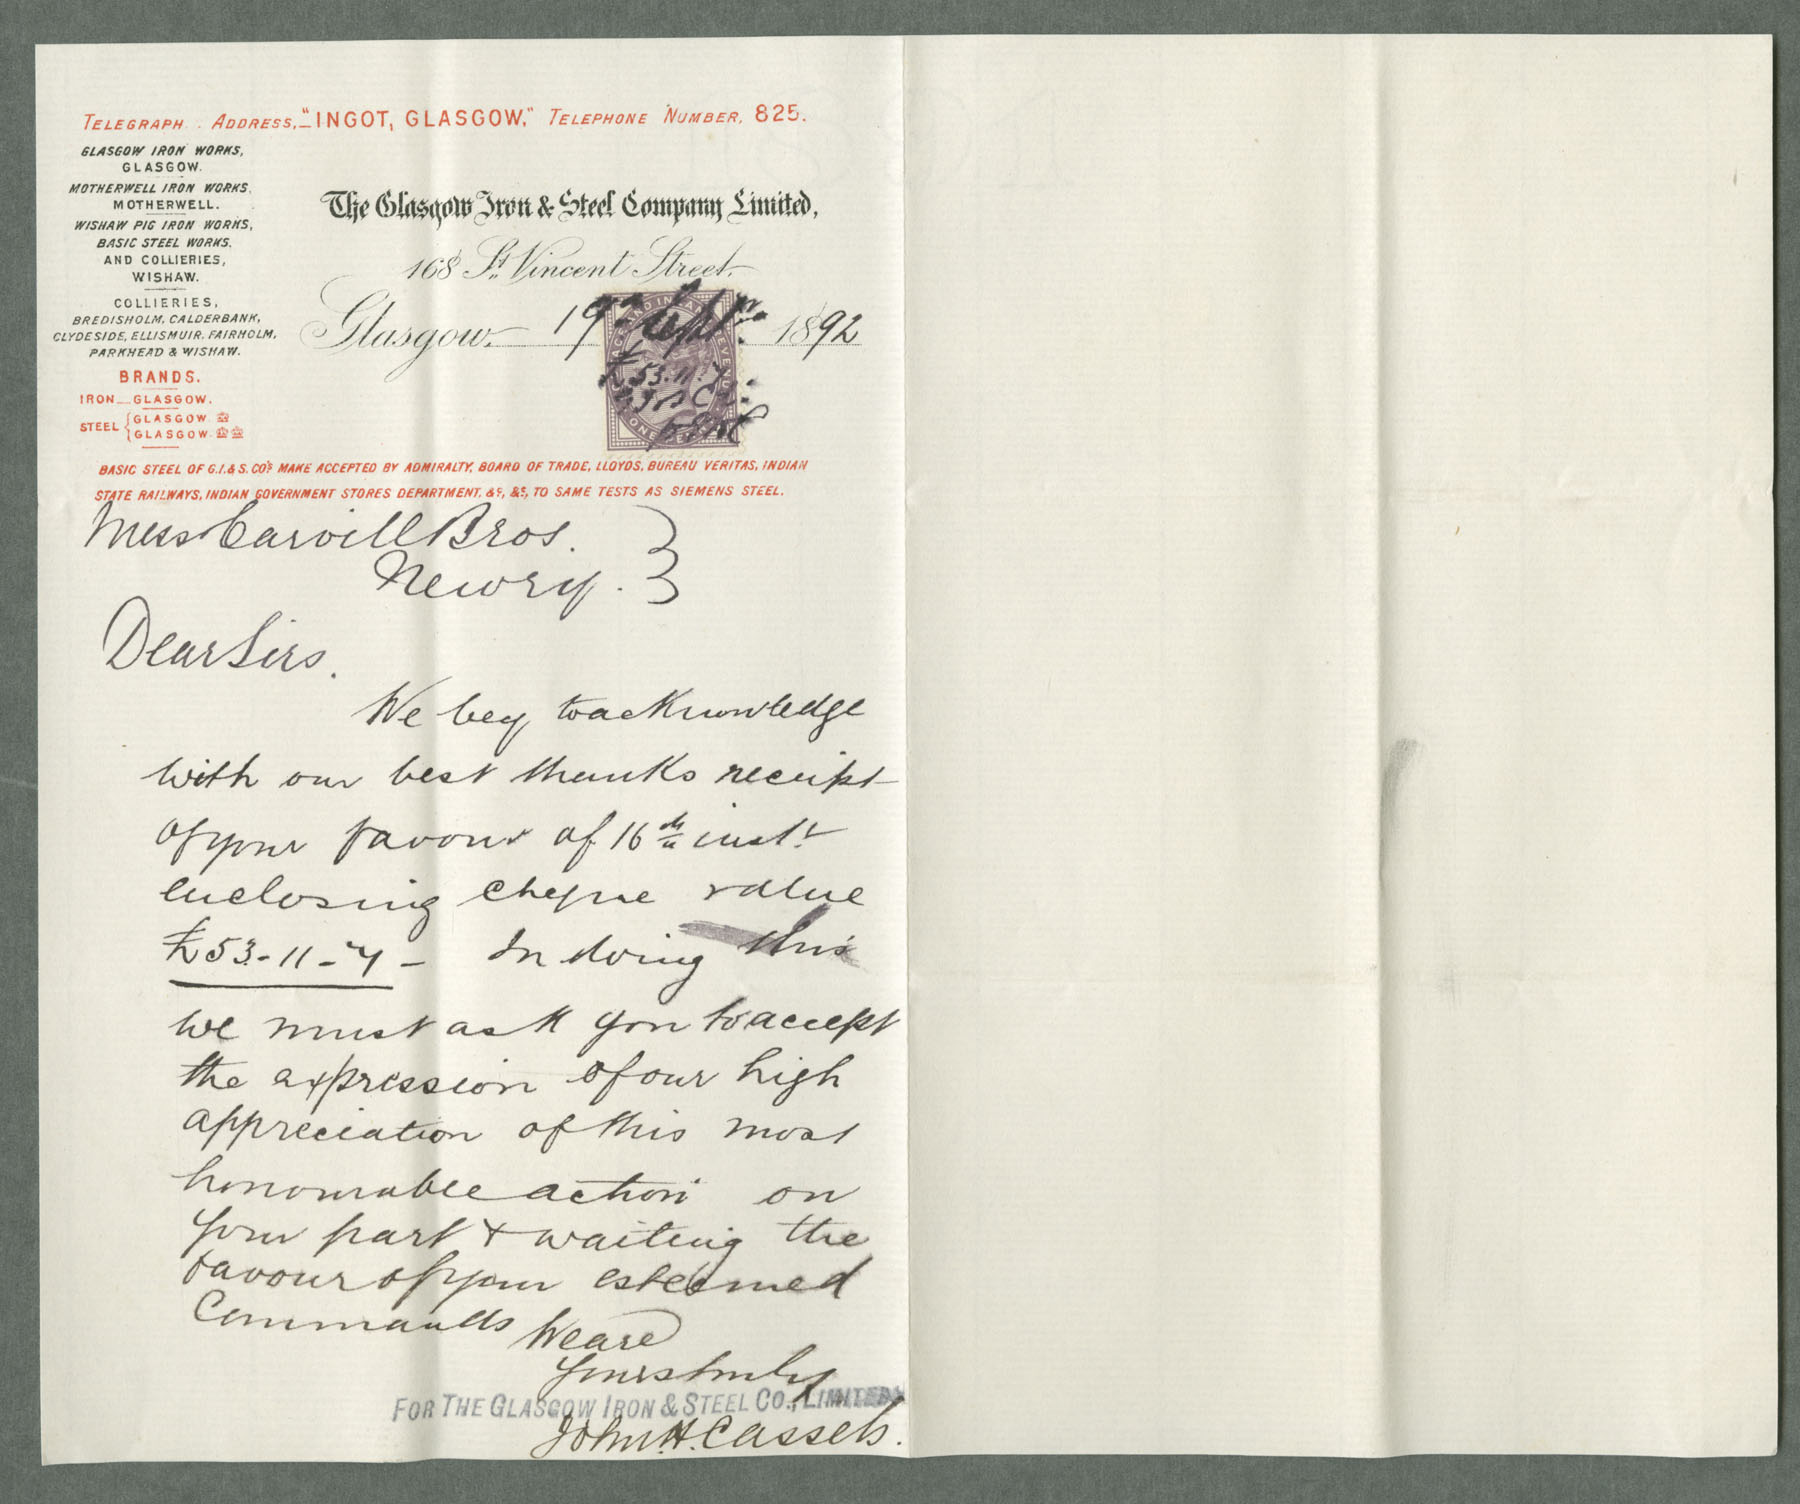 TELEGRAPH ADDRESS, "INGOT, GLASGOW," TELEPHONE NUMBER, 825.
GLASGOW IRON WORKS,
GLASGOW.
MOTHERWELL IRON WORKS,
MOTHERWELL.
WISHAW PIG IRON WORKS,
BASIC STEEL WORKS,
AND COLLIERIES,
WISHAW.
COLLIERIES,
BREDISHOLM, CALDERBANK,
CLYDESIDE, ELLISMUIR, FAIRHOLM,
PARKHEAD & WISHAW.
BRANDS.
IRON GLASGOW.
STEEL { GLASGOW
GLASGOW
The Glasgow Iron & Steel Company Limited,
168 St. Vincent Street.
Glasgow, 19th Septr 1892
£53.11.7
BASIC STEEL OF G.I.& S. CO'S MAKE ACCEPTED BY ADMIRALTY, BOARD OF TRADE, LLOYDS, BUREAU VERITAS, INDIAN
STATE RAILWAYS, INDIAN GOVERNMENT STORES DEPARTMENT, &c, &c, TO SAME TESTS AS SIEMENS STEEL.
Mess Carvill Bros.
Newry.
Dear Sirs.
We beg to acknowledge
with our best thanks receipt
of your favour of 16th inst.
enclosing cheque value
£53-11-7- In doing this
we must ask you to accept
the expression of our high
appreciation of this most
honourable action on
your part & waiting the
favour of your esteemed
Commands We are
Yours truly
FOR THE GLASGOW IRON & STEEL CO., LIMITED
John H. Cassels.